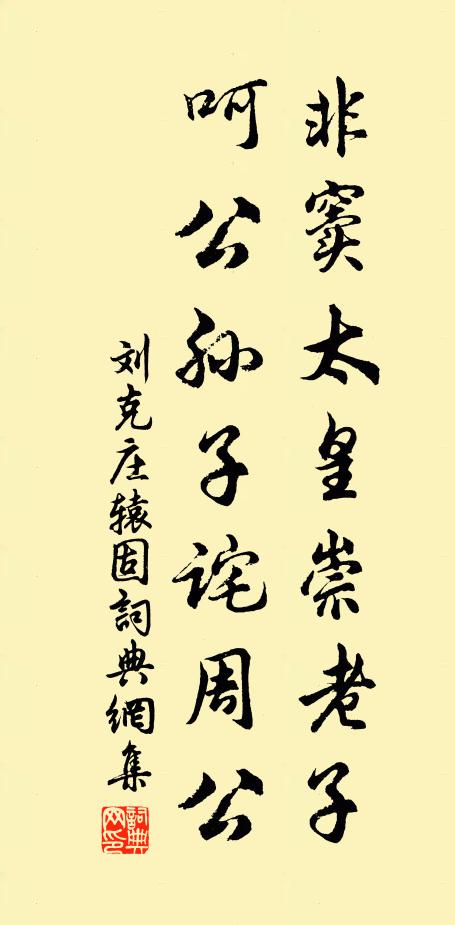 非窦太皇崇老子
呵公孙子诧周公
刘克庄辕固詞典網集
詞典网印